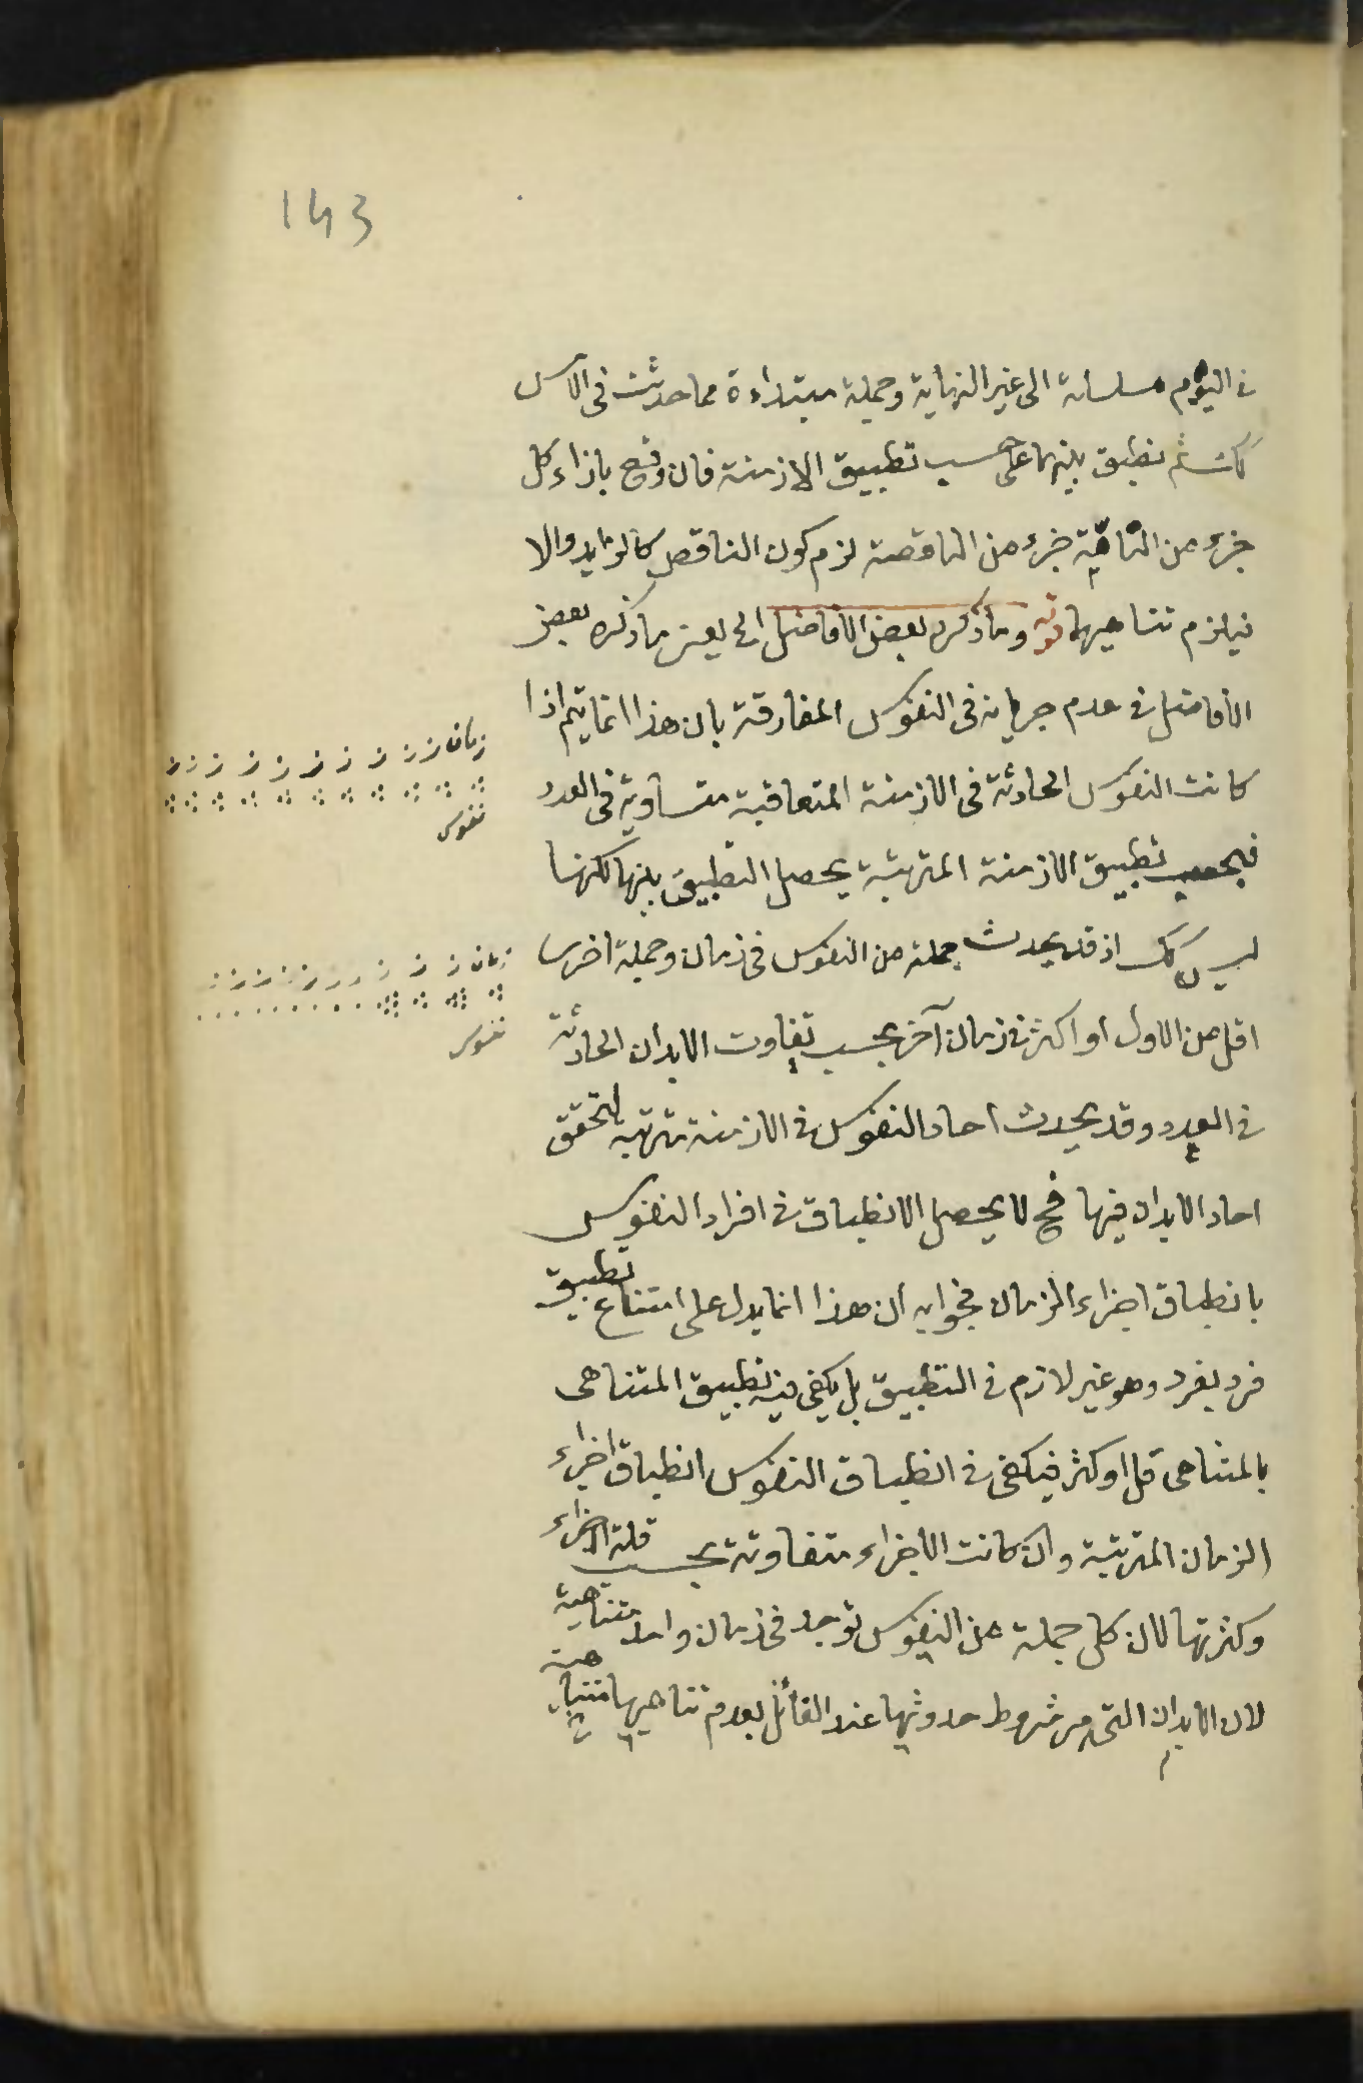 143
في اليوم مسلسلة الى غير النهاية وجملة مبتداءة مما حدثت في الامس
كك ثم نطبق بينهما على حسب تطبيق الازمنة فان وقع بازاء كل
جزء من التامة جزء من الناقصة لزم كون الناقص كالزايد والا
فيلزم تناهيهما قوله وما ذكره بعض الافاضل الخ يعني ما ذكره بعض
الافاضل في عدم جريانه في النفوس المفارقة بان هذا انما يتم اذا
كانت النفوس الحادثة في الازمنة المتعاقبة متساوية في العدد
فبحسب تطبيق الازمنة المترتبة يحصل التطبيق بينها لكنها
ليس كك اذ قد يحدث جملة من النفوس في زمان وجملة اخرى
اقل من الاول او اكثر في زمان آخر بحسب تفاوت الابدان الحادثة
في العدد وقد يحدث احاد النفوس في الازمنة مترتبة لتحقق
احاد الابدان فيها فح لا يحصل الانطباق في افراد النفوس
بانطباق اجزاء الزمان فجوابه ان هذا انما يدل على امتناع تطبيق
فرد بفرد وهو غير لازم في التطبيق بل يكفي فيه تطبيق المتناهى
بالمتناهى قل او كثر فيكفى في انطباق النفوس انطباق اجزاء
الزمان المترتبة وان كانت الاجزاء متفاوتة بحسب قلة الاجزاء
وكثرتها لان كل جملة من النفوس توجد في زمان واحد متناهية
لان الابدان التي هي شروط حدوثها عند القائل بعدم تناهيها متناهية
زمان ز ز ز ز ز ز ز ز ز ز
نفوس
زمان ز ز ز ز ز ز ز ز ز
نفوس